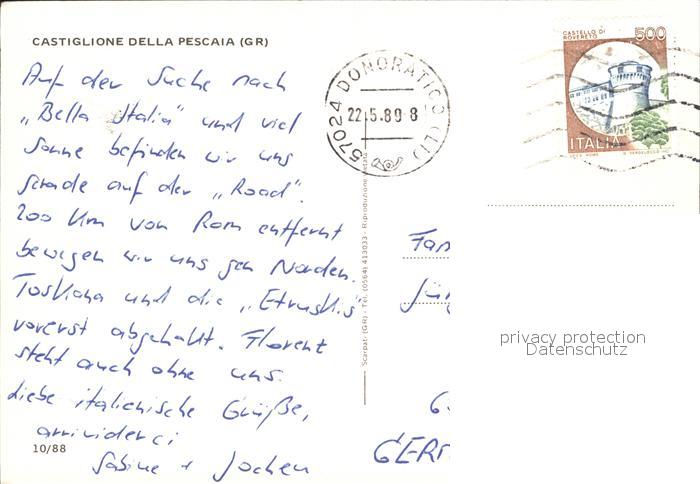 CASTIGLIONE DELLA PESCAIA (GR)
Auf der Suche nach
"Bella Italia" und viel
Sonne befinden wir uns
gerade auf der "Road".
200 Km von Rom entfernt
bewegen wir uns gen Norden.
Toskana und die "Etruskis"
vorerst abgehakt. Florenz
steht auch ohne uns.
Liebe italienische Grüße,
arrividerci
Sabine + Jochen
10/88
57024 DONORATICO (LI)
22.5.89 8
Scarpati (GR) - Tel. (0564) 413033 - Riproduzione
CASTELLO DI
ROVERETO
500
ITALIA
Fam
Jür
6
GER
privacy protection
Datenschutz